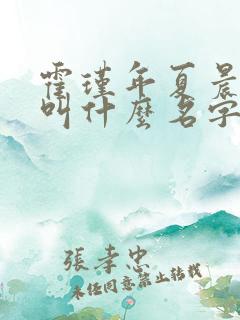 霍瑾年夏晨
叫什麼名字
張孝忠
未經同意禁止转载